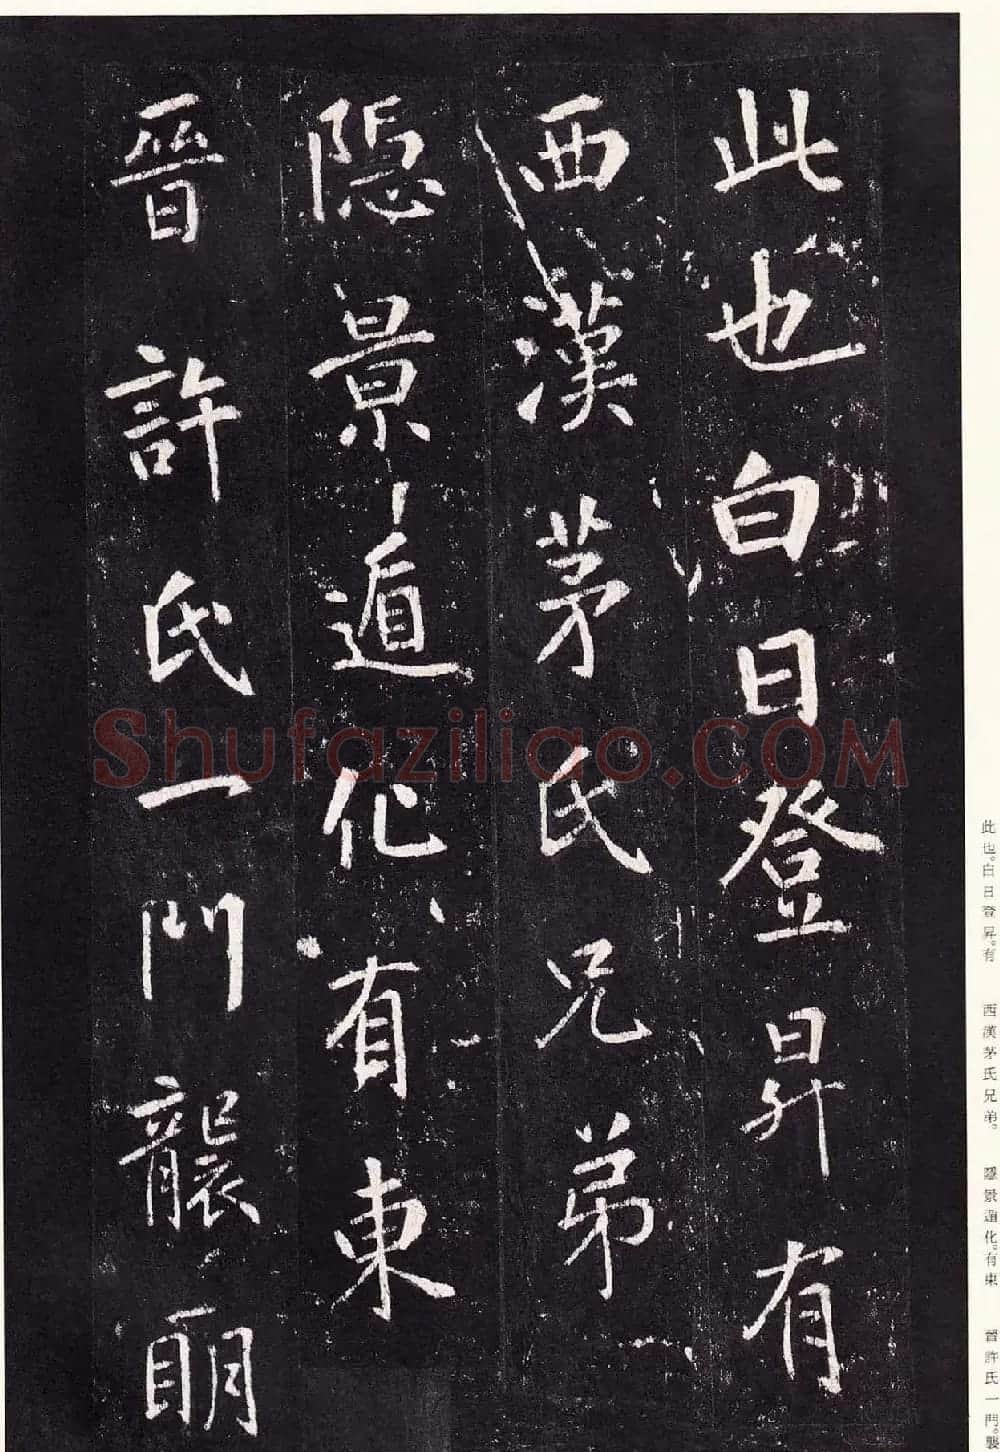 此也白日登昇有
西漢茅氏兄弟
隱景遁化有東
晉許氏一門襲明
Shufaziliao.COM
此也。白日登昇。有 西漢茅氏兄弟。 隱景遁化。有東 晉許氏一門。襲